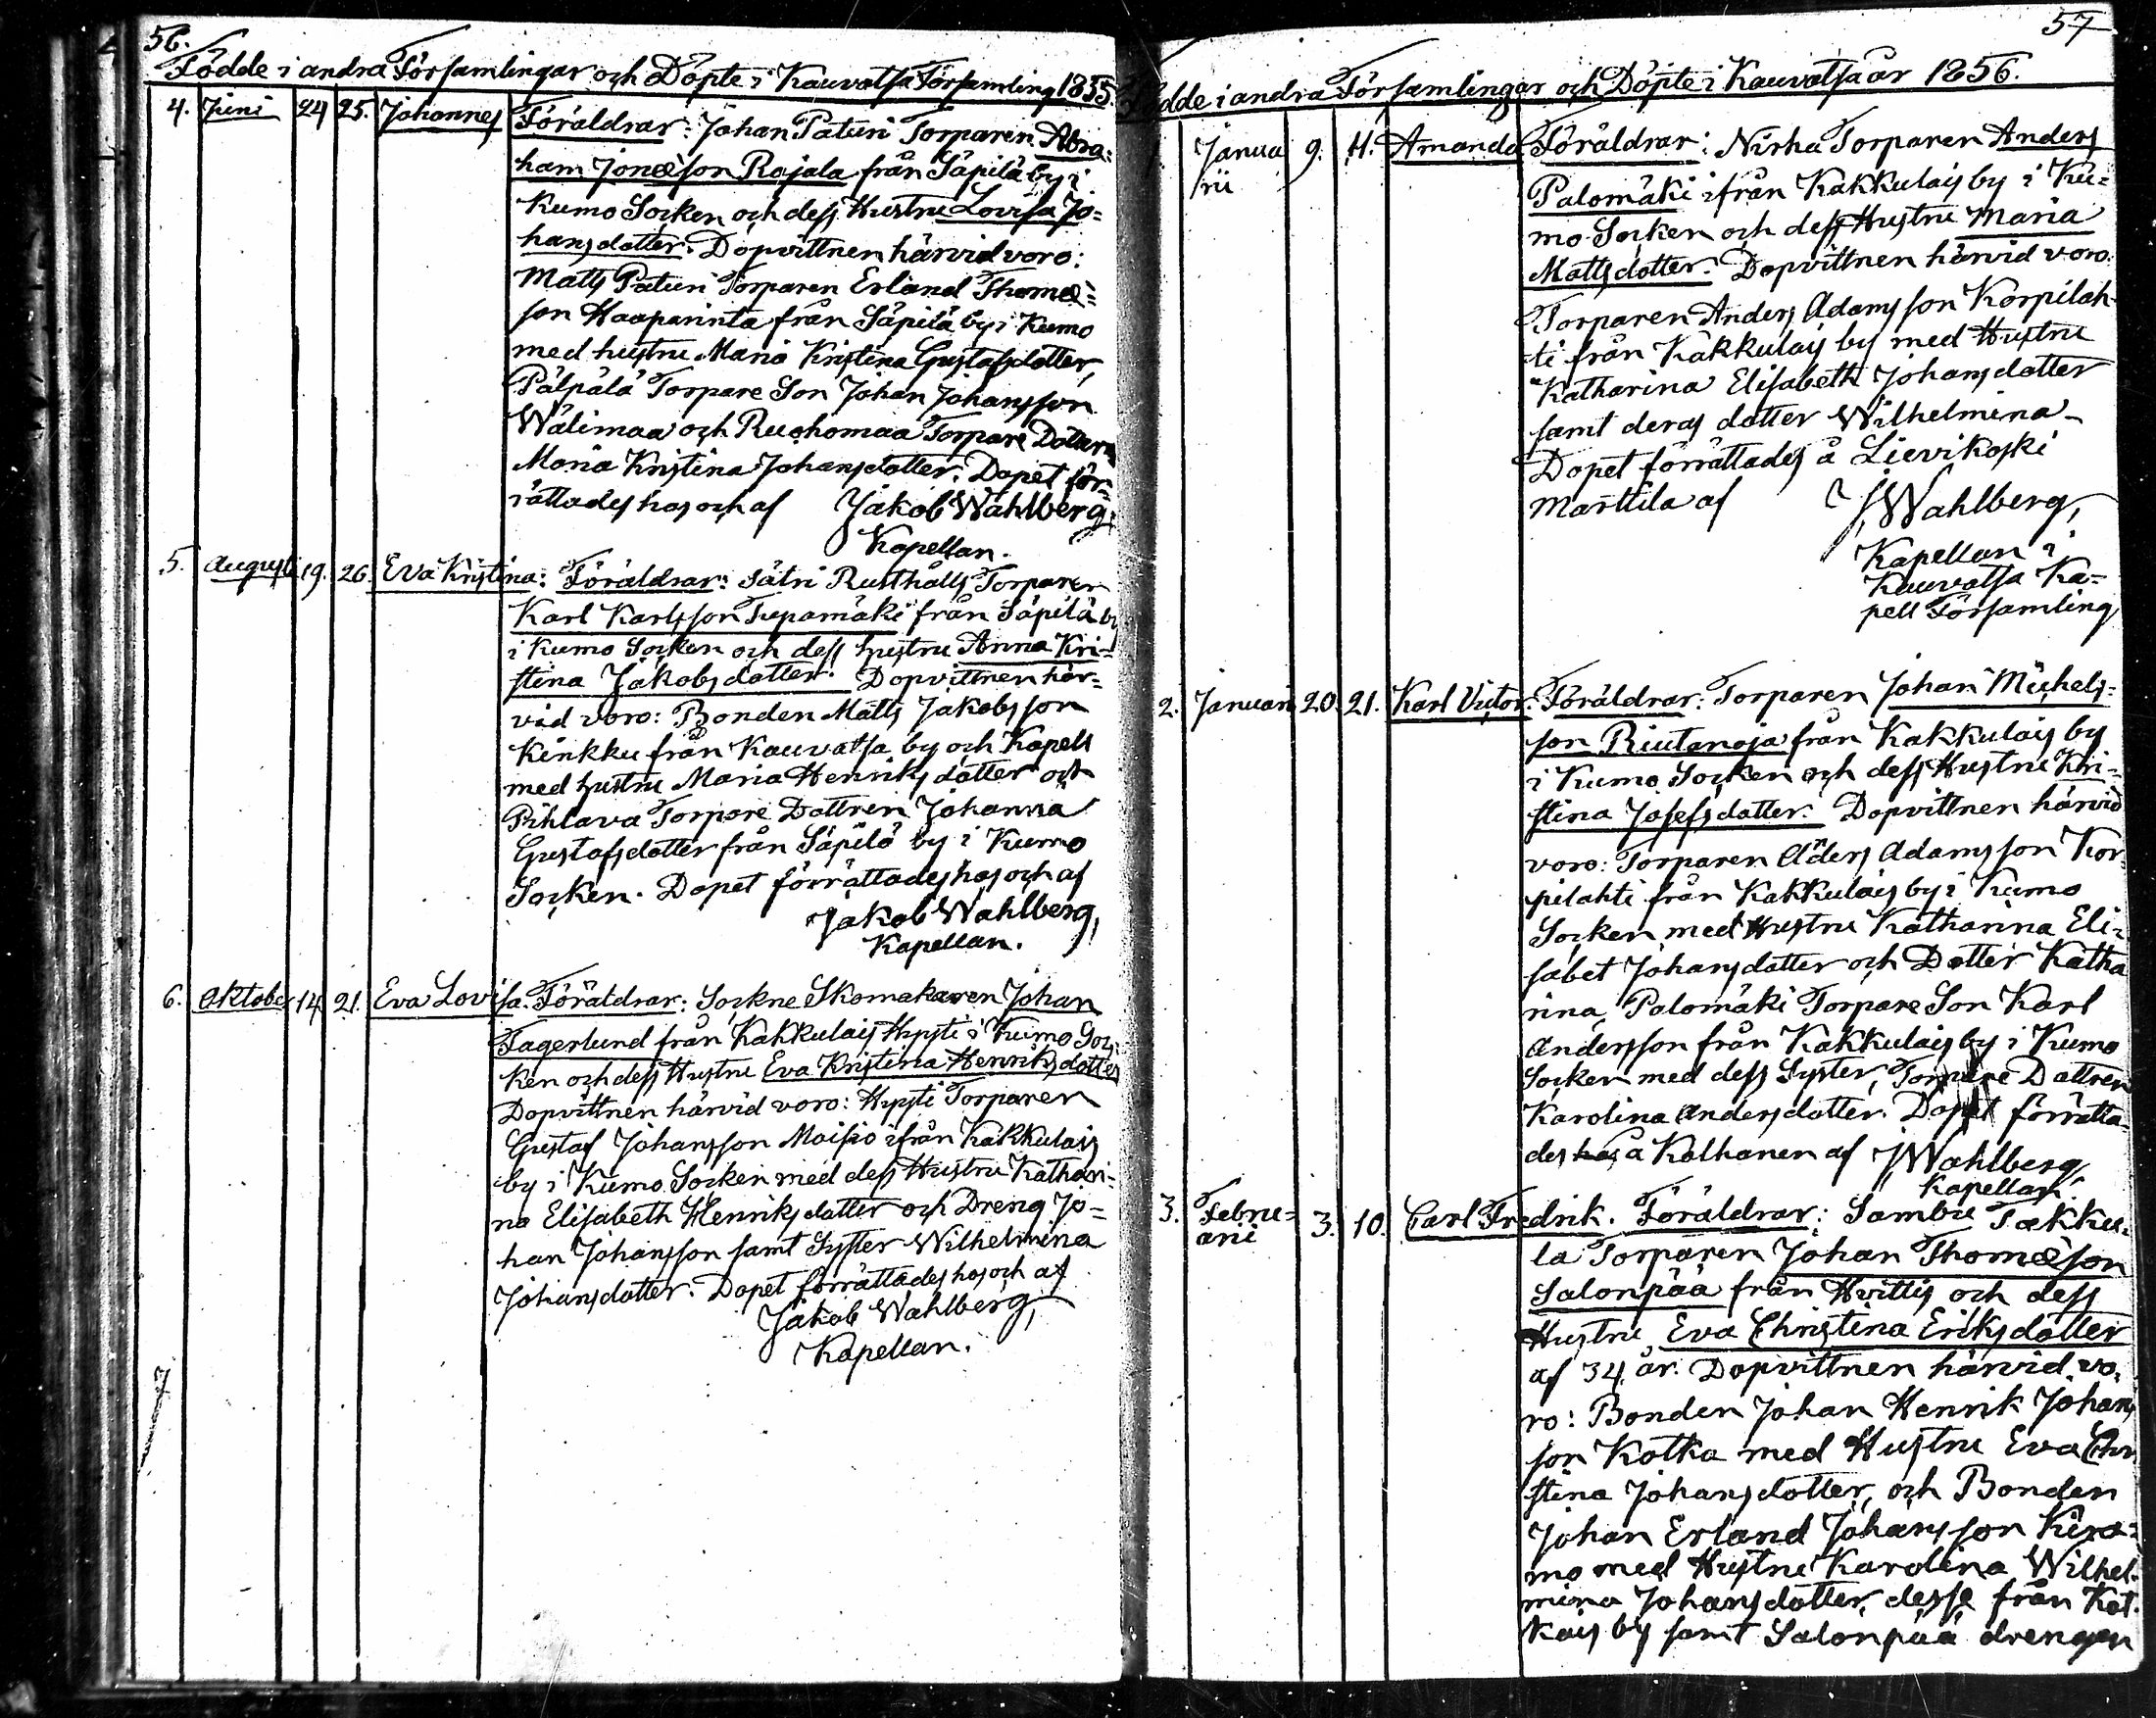 56.
Födde i andra Församlingar och Döpte i Kauvatsa Församling 1855.
4. Juni 24 25. Johannes Föräldrar: Johan Paturi Torparen Abra=
ham Jonæson Rajala från Säpilä by i
Kumo Socken och dess Hustru Lovisa Jo=
hansdotter. Dopvittnen härvid voro:
Matts Paturi Torparen Erland Thomæ=
son Haaparinta från Säpilä by i Kumo
med hustru Maria Kristina Gustafsdotter,
Pälpälä Torpare Son Johan Johansson
Wälimaa och Ruohomaa Torpare Dottern
Maria Kristina Johansdotter. Dopet för=
rättades hos och af Jakob Wahlberg,
Kapellan.
5. Augusti 19. 26. Eva Kristina: Föräldrar: Sätri Rusthålls Torparen
Karl Karlsson Tupamäki från Säpilä by
i Kumo Socken och dess hustru Anna Kri=
stina Jakobsdotter. Dopvittnen här=
vid voro: Bonden Matts Jakobsson
Kinkku från Kauvatsa by och Kapell
med hustru Maria Henriksdotter och
Pihlava Torpare Dottren Johanna
Gustafsdotter från Säpilä by i Kumo
Socken. Dopet förrättades hos och af
Jakob Wahlberg,
Kapellan.
6. Oktober 14. 21. Eva Lovisa. Föräldrar: Sockne Skomakaren Johan
Fagerlund från Kakkulais Hysti i Kumo Soc=
ken och dess Hustru Eva Kristina Henriksdotter
Dopvittnen härvid voro: Hysti Torparen
Gustaf Johansson Moisio ifrån Kakkulais
by i Kumo Socken med dess Hustru Kathari=
na Elisabeth Henriksdotter och Dreng Jo=
han Johansson samt Syster Wilhelmina
Johansdotter. Dopet förrättades hos och af
Jakob Wahlberg,
Kapellan.
57
Födde i andra Församlingar och Döpte i Kauvatsa år 1856.
Janua 9. 11. Amanda Föräldrar: Nirha Torparen Anders
rii Palomäki ifrån Kakkulais by i Ku=
mo Socken och dess Hustru Maria
Mattsdotter. Dopvittnen härvid voro
Torparen Anders Adamsson Korpilah-
ti från Kakkulais by med Hustru
Katharina Elisabeth Johansdotter
samt deras dotter Wilhelmina
Dopet förrättades å Lievikoski
Marttila af J. Wahlberg,
Kapellan i
Kauvatsa Ka=
pell Församling
2. Januari 20. 21. Karl Victor. Föräldrar: Torparen Johan Michels=
son Riutanoja från Kakkulais by
i Kumo Socken och dess Hustru Kri=
stina Josefsdotter. Dopvittnen härvid
voro: Torparen Aders Adamsson Kor
pilahti från Kakkulais by i Kumo
Socken med Hustru Katharina Eli=
sabet Johansdotter och Dotter Katha
rina, Palomäki Torpare Son Karl
Andersson från Kakkulais by i Kumo
Socken med dess Syster, Torpare Dottren
Karolina Andersdotter. Dopet förrätta=
des hos å Kalhanen af J Wahlberg,
Kapellan.
3. Febru= 3. 10. Carl Fredrik. Föräldrar: Sambu Takku=
ari la Torparen Johan Thomæson
Salonpää från Hvittis och dess
Hustru Eva Christina Eriksdotter
af 34 år. Dopvittnen härvid vo,
ro: Bonden Johan Henrik Johans
son Kotka med Hustru Eva Chri
stina Johansdotter, och Bonden
Johan Erland Johansson
mo med Hustru Karolina Wilhel=
mina Johansdotter desse från Kot
kais by samt Salonpää drengen